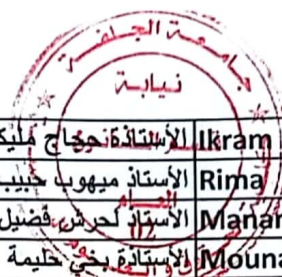 جامعة الجلفة
نيابة
الأستاذة حجاج مليكة Ikram
الأستاذ ميهوب حبيب Rima
الأستاذ لحرش فضيل Manar
الأستاذة بخي حليمة Mouna